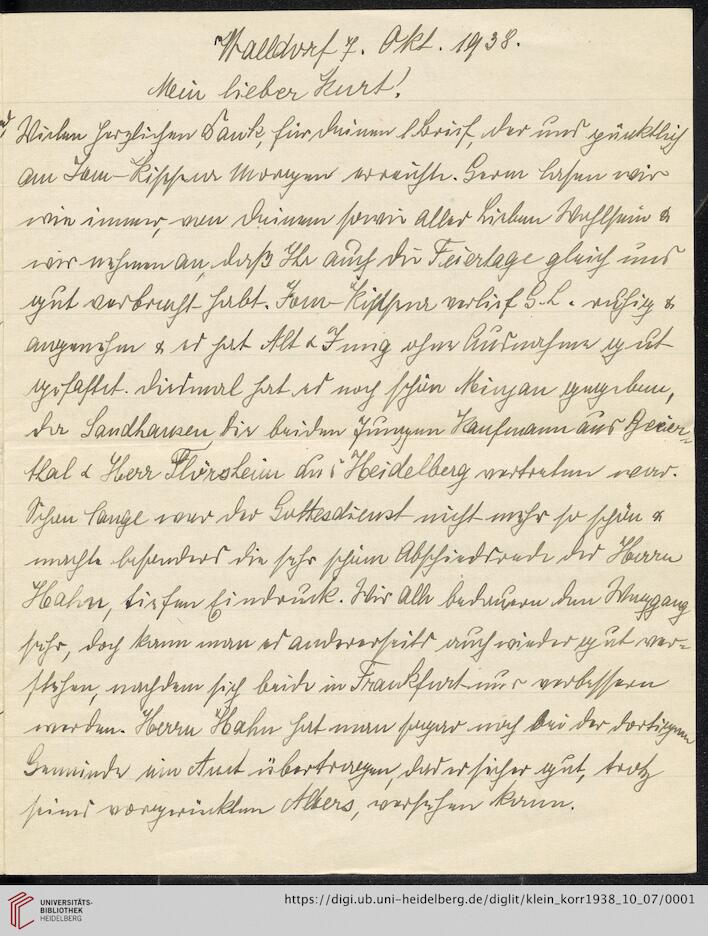 Walldorf 7. Okt. 1938.
Mein lieber Kurt!
Vielen herzlichen Dank, für Deinen l. Brief, der uns pünktlich
am Jom-Kippur Morgen erreichte. Gern lasen wir
wie immer, von Deinem sowie aller Lieben Wohlsein &
wir nehmen an, daß Ihr auch die Feiertage gleich uns
gut verbracht habt. Jom-Kippur verlief G. L. ruhig &
angenehm & es hat Alt & Jung ohne Ausnahme gut
gefastet. Diesmal hat es noch schön Minjan gegeben,
da Sandhausen, die beiden Jungen Kaufmann aus Beier-
thal & Herr Flörsheim aus Heidelberg vertreten war.
Schon lange war der Gottesdienst nicht mehr so schön &
machte besonders die sehr schöne Abschiedsrede des Herrn
Hahn, tiefen Eindruck. Wir alle bedauern den Weggang
sehr, doch kann man es andererseits auch wieder gut ver-
stehen, nachdem sich beide in Frankfurt nur verbessern
werden. Herrn Hahn hat man sogar noch bei der dortigen
Gemeinde ein Amt übertragen, das er sicher gut, trotz
seines vorgerückten Alters, versehen kann.
UNIVERSITÄTS-
BIBLIOTHEK
HEIDELBERG
https://digi.ub.uni-heidelberg.de/diglit/klein_korr1938_10_07/0001